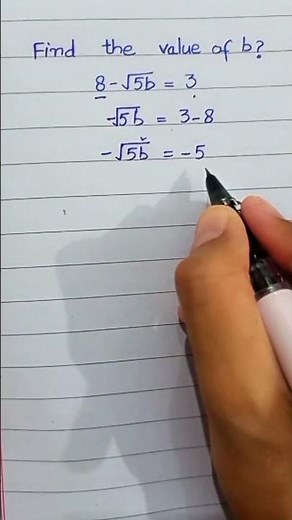 Find the value of b?
8 - √5b = 3
-√5b = 3-8
-√5b = -5